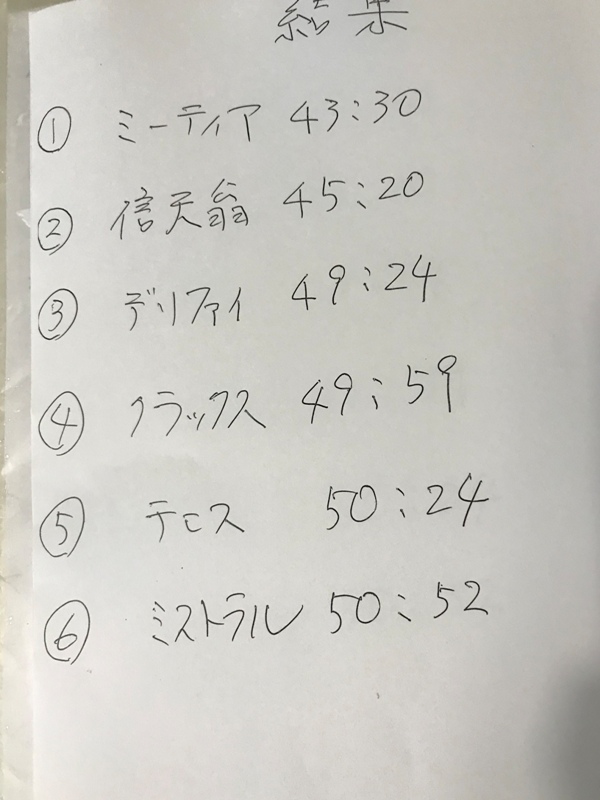 結果
① ミーティア 43:30
② 信天翁 45:20
③ デリファイ 49:24
④ クラックス 49:59
⑤ テヒス 50:24
⑥ ミストラル 50:52